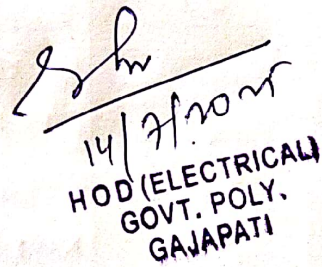 14/7/2025
HOD (ELECTRICAL)
GOVT. POLY.
GAJAPATI